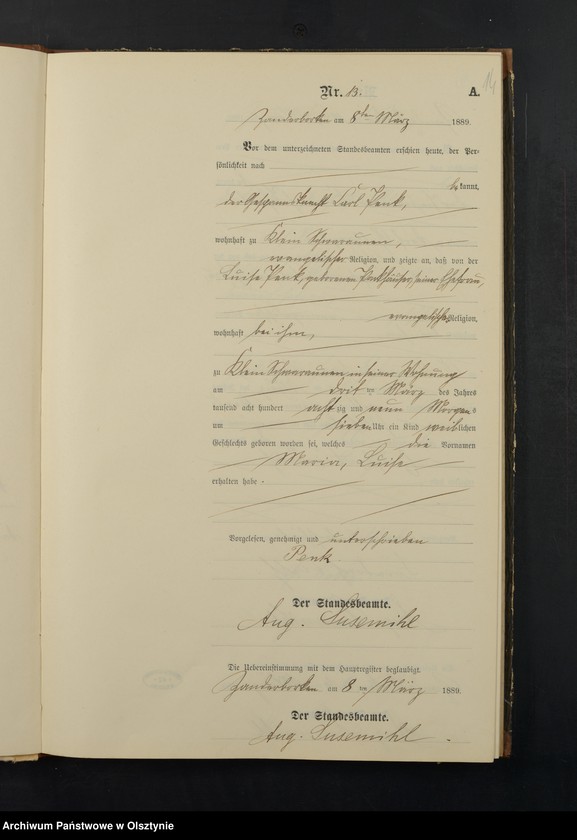 14
Nr. 13. A.
Zanderborken am 8ten März 1889.
Vor dem unterzeichneten Standesbeamten erschien heute, der Per-
sönlichkeit nach
bekannt,
der Gespannknecht Carl Penk,
wohnhaft zu Klein Schwaraunen,
evangelischer Religion, und zeigte an, daß von der
Luise Penk, geborenen seiner Ehefrau,
evangelischer Religion,
wohnhaft bei ihm,
zu Klein Schwaraunen in seiner Wohnung
am März des Jahres
tausend acht hundert achtzig und neun Morgens
um sieben Uhr ein Kind weiblichen
Geschlechts geboren worden sei, welches die Vornamen
Maria, Luise
erhalten habe.
Vorgelesen, genehmigt und unterschrieben
Penk
Der Standesbeamte.
Aug. Susemihl
Die Uebereinstimmung mit dem Hauptregister beglaubigt.
Zanderborken am 8ten März 1889.
Der Standesbeamte.
Aug. Susemihl.
Archiwum Państwowe w Olsztynie